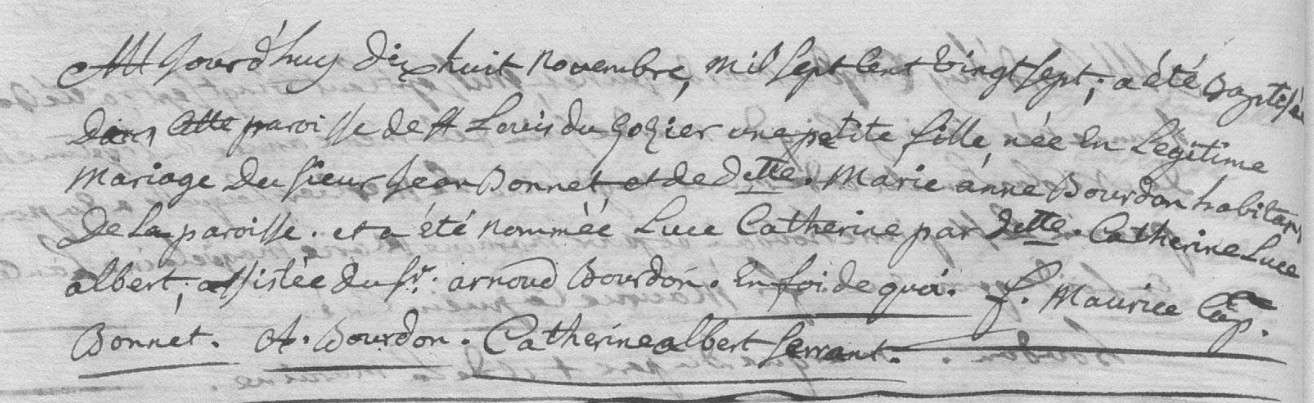 AU Jourd'huy dix huit novembre, mil sept cent vingt sept; a été Baptisée
dans cette paroisse de St Louis du Gozier une petite fille, née En Legitime
Mariage du sieur Jean Bonnet et de delle. Marie anne Bourdon habitans
De La paroisse. et a été nommée Luce Catherine par delle. Catherine Luce
albert; assistée du Sr. arnoud Bourdon. En foi de quoi. f. Maurice Cap.
Bonnet. A. Bourdon. Catherine albert Serrant.